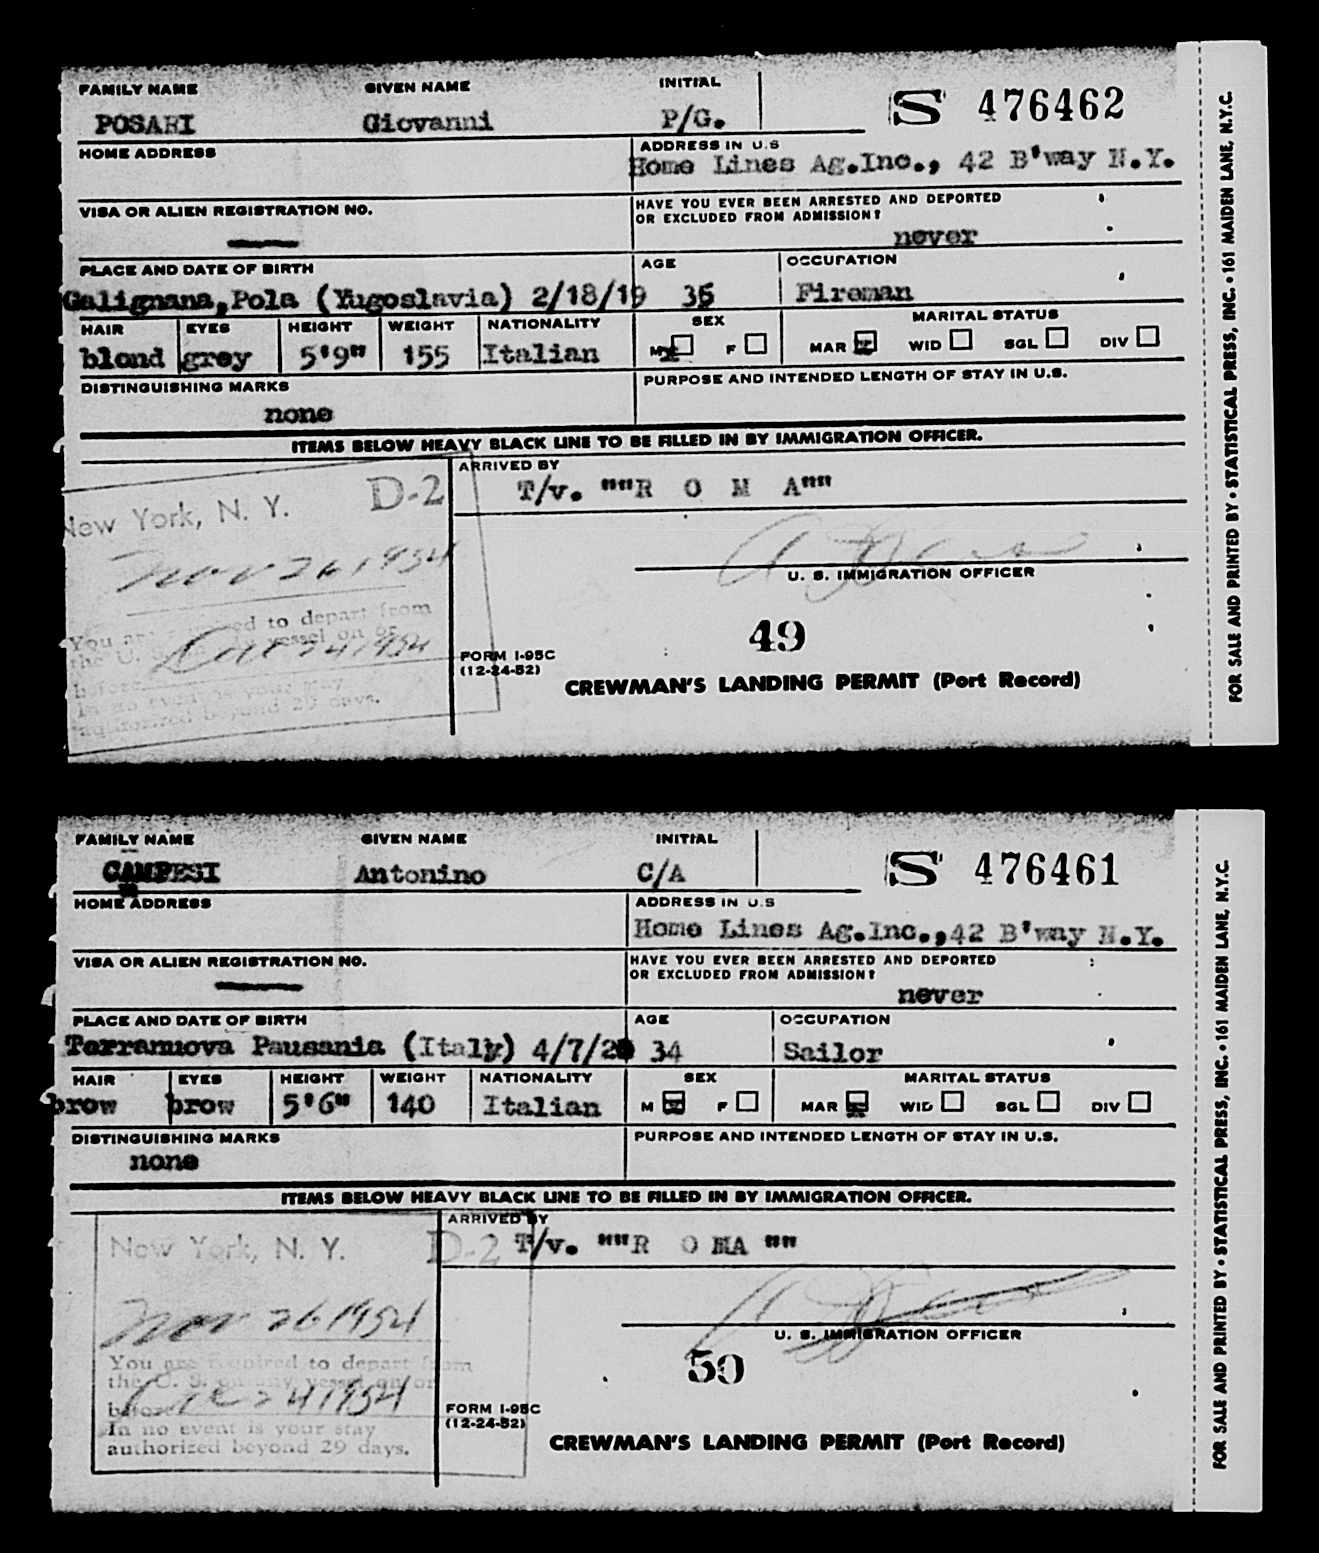 FAMILY NAME GIVEN NAME INITIAL
POSARI Giovanni P/G. S 476462
HOME ADDRESS ADDRESS IN U.S
Home Lines Ag.Inc., 42 B'way N.Y.
VISA OR ALIEN REGISTRATION NO. HAVE YOU EVER BEEN ARRESTED AND DEPORTED
OR EXCLUDED FROM ADMISSION?
never
PLACE AND DATE OF BIRTH AGE OCCUPATION
Galignana,Pola (Yugoslavia) 2/18/19 35 Fireman
HAIR EYES HEIGHT WEIGHT NATIONALITY SEX MARITAL STATUS
blond grey 5'9" 155 Italian M F MAR WID SGL DIV
DISTINGUISHING MARKS PURPOSE AND INTENDED LENGTH OF STAY IN U.S.
none
ITEMS BELOW HEAVY BLACK LINE TO BE FILLED IN BY IMMIGRATION OFFICER.
ARRIVED BY
T/v. ""R O M A""
New York, N. Y. D-2
Nov 26 1954
U. S. IMMIGRATION OFFICER
You are required to depart from
the U. S. vessel on or
before Dec 24 1954
In no event is your stay
authorized beyond 29 days.
49
FORM I-95C
(12-24-52)
CREWMAN'S LANDING PERMIT (Port Record)
FOR SALE AND PRINTED BY • STATISTICAL PRESS, INC. • 161 MAIDEN LANE, N.Y.C.
FAMILY NAME GIVEN NAME INITIAL
CAMPESI Antonino C/A S 476461
HOME ADDRESS ADDRESS IN U.S
Home Lines Ag.Inc.,42 B'way N.Y.
VISA OR ALIEN REGISTRATION NO. HAVE YOU EVER BEEN ARRESTED AND DEPORTED
OR EXCLUDED FROM ADMISSION?
never
PLACE AND DATE OF BIRTH AGE OCCUPATION
Terranuova Pausania (Italy) 4/7/20 34 Sailor
HAIR EYES HEIGHT WEIGHT NATIONALITY SEX MARITAL STATUS
brow brow 5'6" 140 Italian M F MAR WID SGL DIV
DISTINGUISHING MARKS PURPOSE AND INTENDED LENGTH OF STAY IN U.S.
none
ITEMS BELOW HEAVY BLACK LINE TO BE FILLED IN BY IMMIGRATION OFFICER.
ARRIVED BY
New York, N. Y. D-2 T/v. ""R O MA ""
Nov 26 1954
U. S. IMMIGRATION OFFICER
You are required to depart from
the U. S. on any vessel on or
before Dec 24 1954
In no event is your stay
authorized beyond 29 days.
50
FORM I-95C
(12-24-52)
CREWMAN'S LANDING PERMIT (Port Record)
FOR SALE AND PRINTED BY • STATISTICAL PRESS, INC. • 161 MAIDEN LANE, N.Y.C.